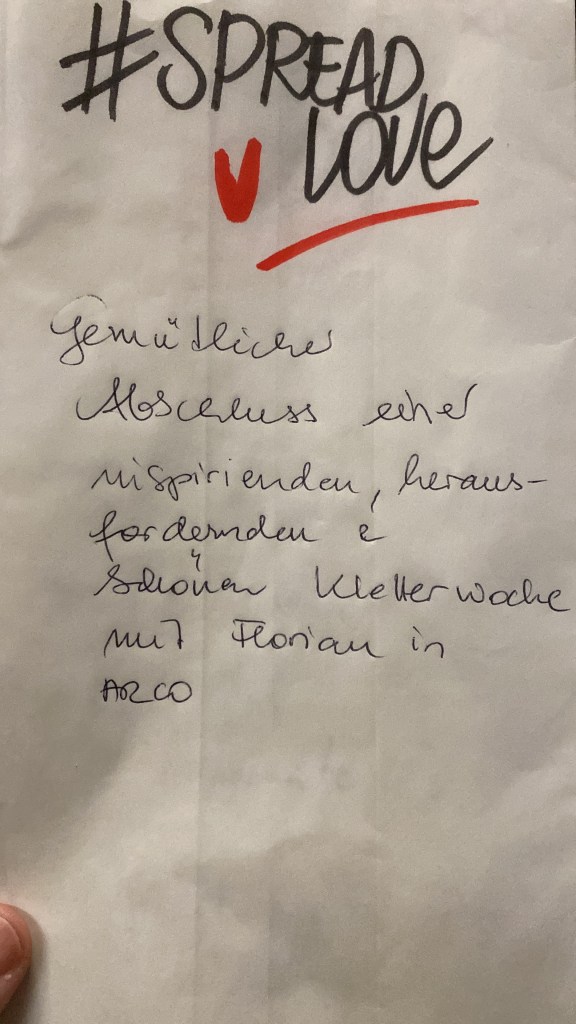 #SPREAD
LOVE
Gemütlicher
Abschluss einer
inspirienden, heraus-
fordernden &
schönen Kletterwoche
mit Florian in
ARCO